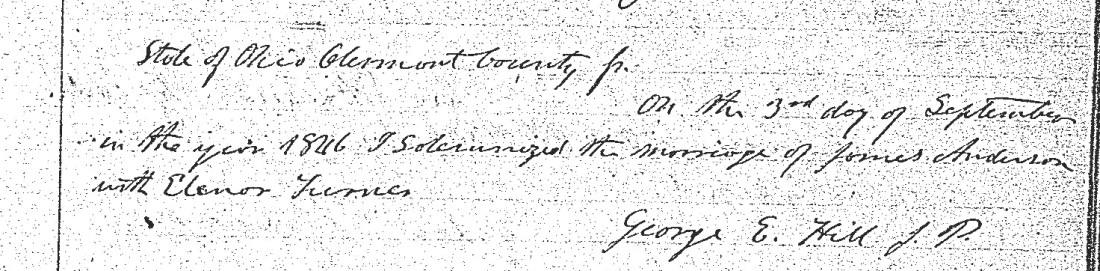 State of Ohio Clermont County ss.
On the 3rd day of September
in the year 1846 I Solemnized the marriage of James Anderson
with Elenor Turner
George E. Hill J. P.